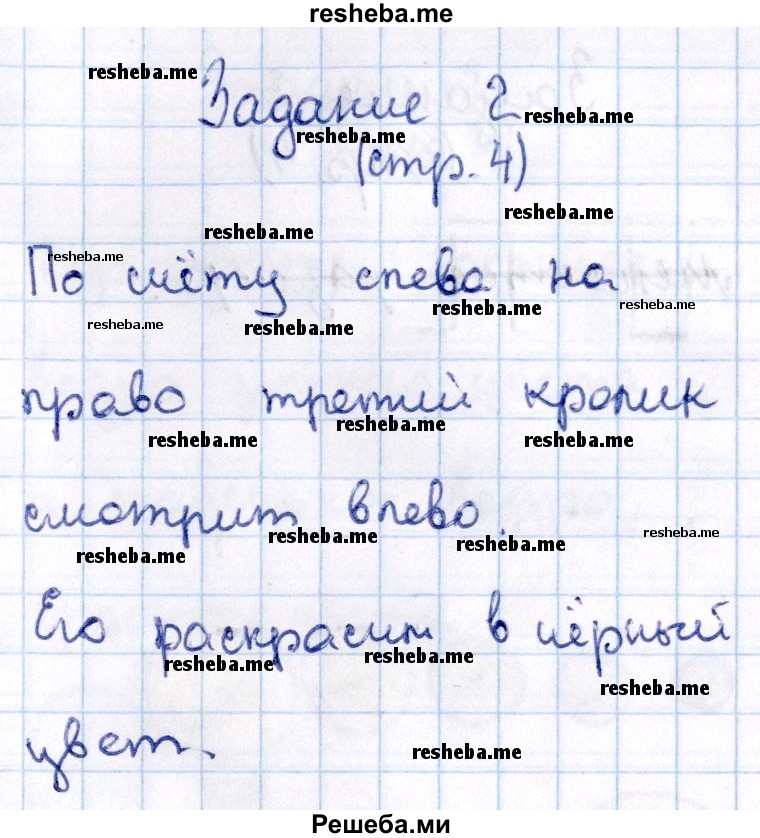 resheba.me
resheba.me
Задание 2
resheba.me
resheba.me
(стр. 4)
resheba.me
resheba.me
По счёту слева на
resheba.me
resheba.me
resheba.me
resheba.me
resheba.me
право третий кролик
resheba.me
resheba.me
resheba.me
смотрит влево.
resheba.me
resheba.me
resheba.me
resheba.me
Его раскрасим в чёрный
resheba.me
resheba.me
resheba.me
цвет.
resheba.me
Решеба.ми